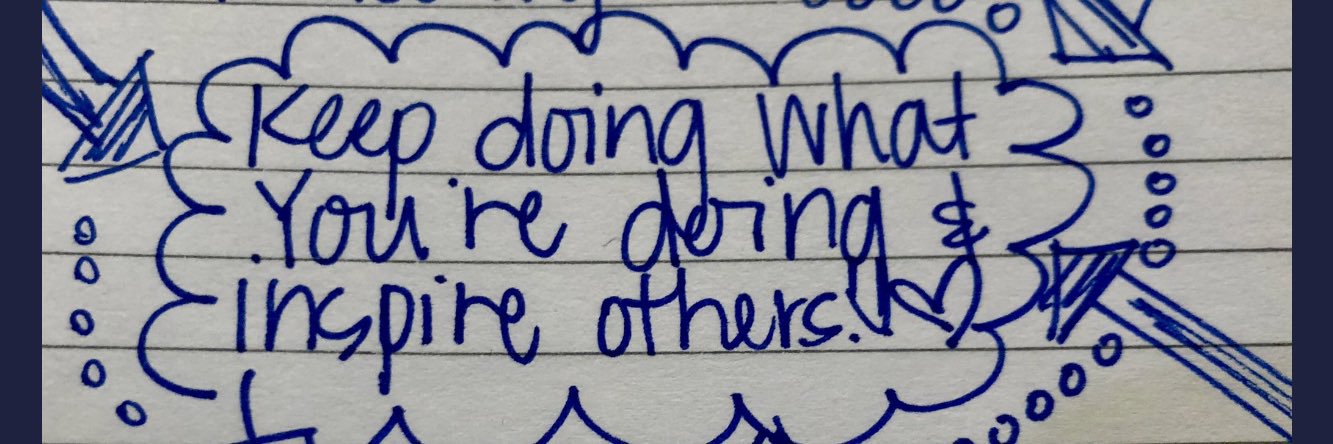 Keep doing what
You're doing &
inspire others! ♡